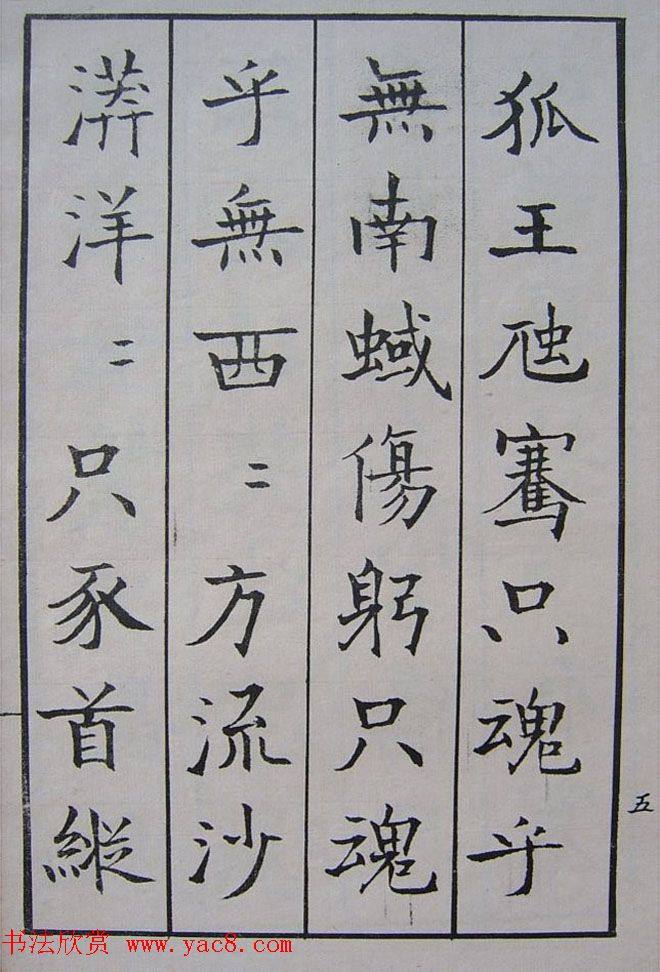 狐王虺騫只魂乎
無南蜮傷躬只魂
乎無西〻方流沙
漭洋〻只豕首縱
五
书法欣赏 www.yac8.com